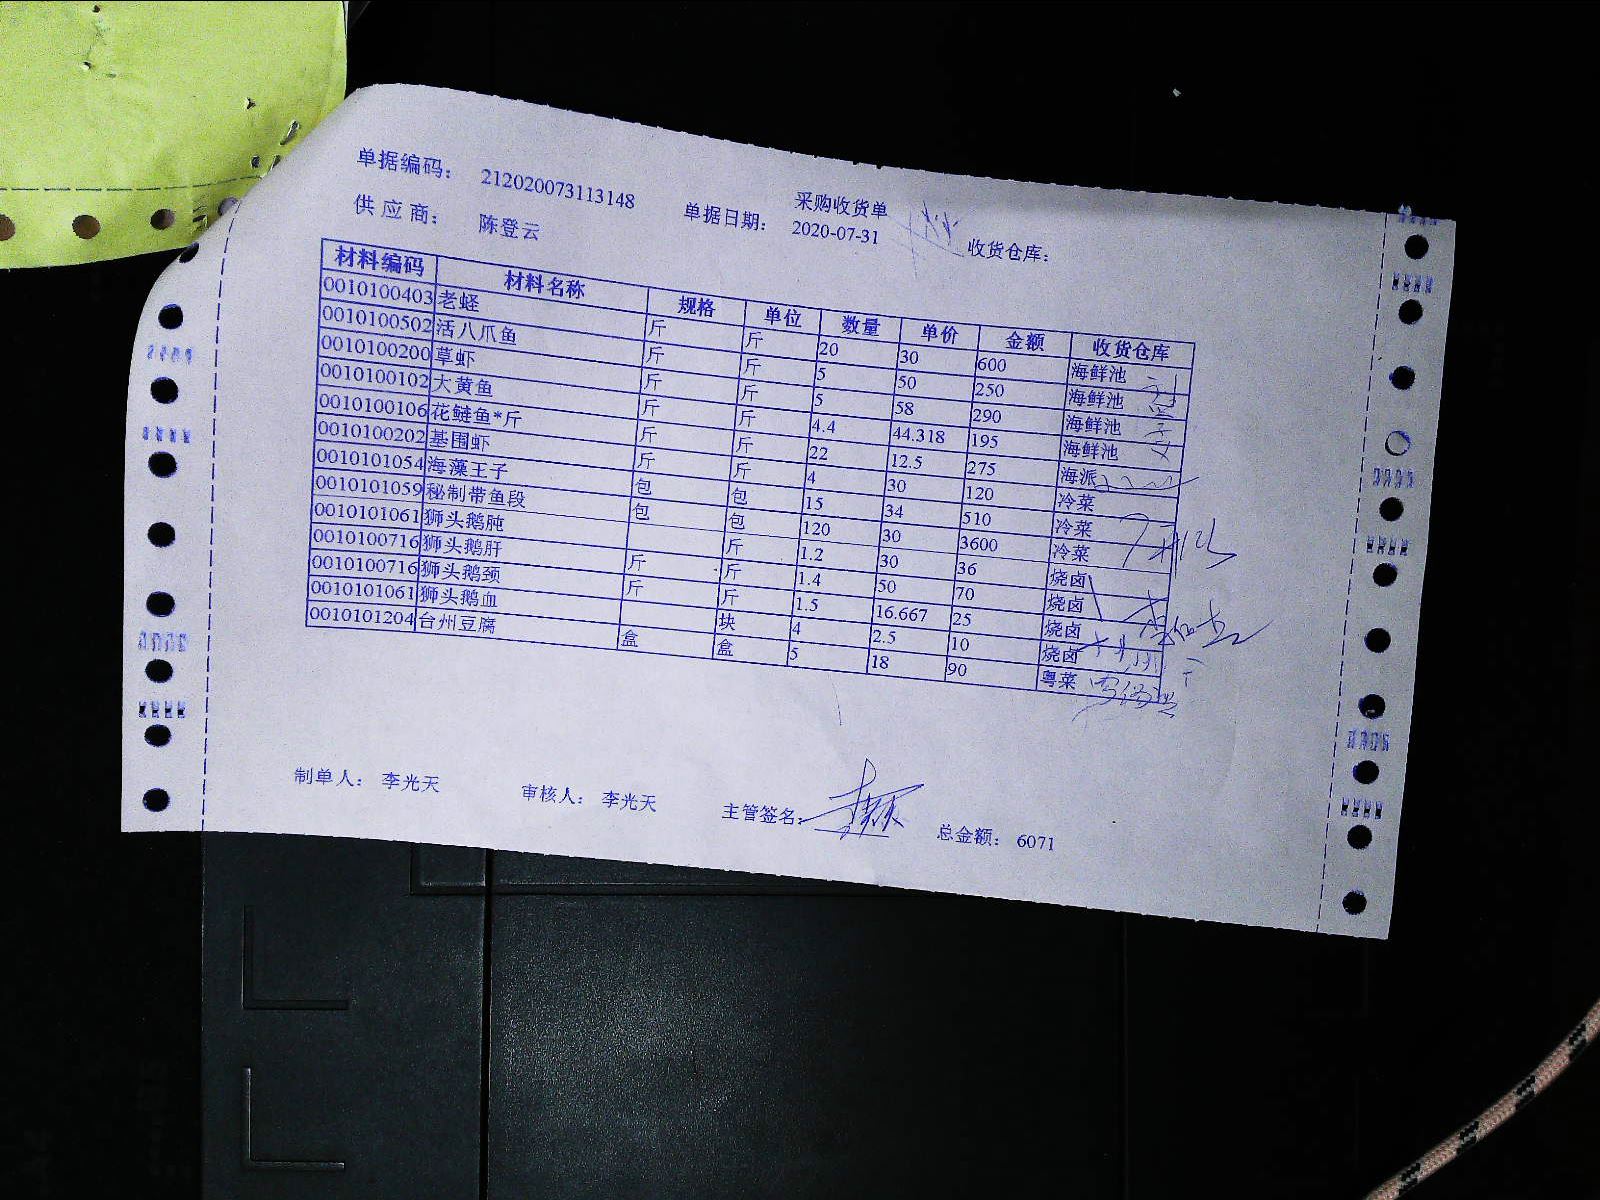 采购收货单
单据编码： 212020073113148 单据日期： 2020-07-31 收货仓库：
供应商： 陈登云
材料编码 材料名称 规格 单位 数量 单价 金额 收货仓库
0010100403 老蛏 斤 斤 20 30 600 海鲜池
0010100502 活八爪鱼 斤 斤 5 50 250 海鲜池
0010100200 草虾 斤 斤 5 58 290 海鲜池
0010100102 大黄鱼 斤 斤 4.4 44.318 195 海鲜池
0010100106 花鲢鱼*斤 斤 斤 22 12.5 275 海派
0010100202 基围虾 斤 斤 4 30 120 冷菜
0010101054 海藻王子 包 包 15 34 510 冷菜
0010101059 秘制带鱼段 包 包 120 30 3600 冷菜
0010101061 狮头鹅肫 斤 1.2 30 36 烧卤
0010100716 狮头鹅肝 斤 斤 1.4 50 70 烧卤
0010100716 狮头鹅颈 斤 斤 1.5 16.667 25 烧卤
0010101061 狮头鹅血 块 4 2.5 10 烧卤
0010101204 台州豆腐 盒 盒 5 18 90 粤菜
制单人： 李光天 审核人： 李光天 主管签名： 总金额： 6071